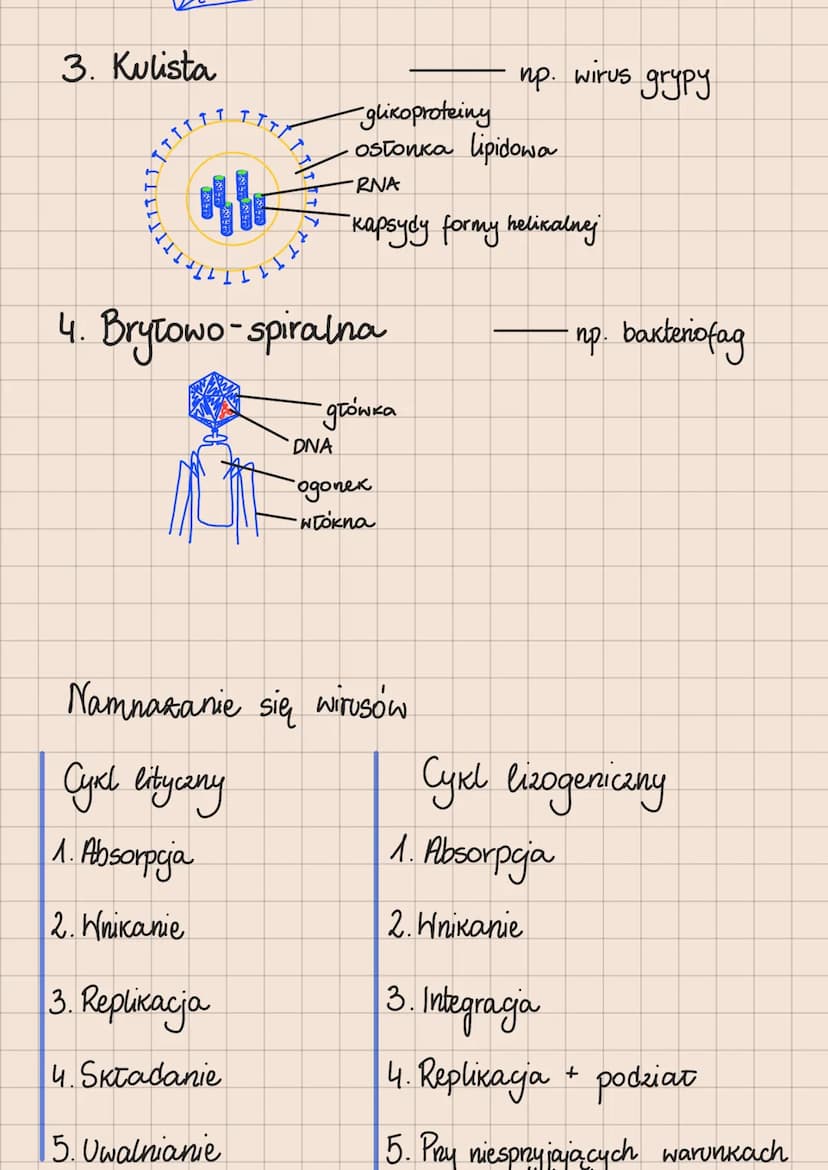 3. Kulista — np. wirus grypy
glikoproteiny
osłonka lipidowa
RNA
kapsydy formy helikalnej
4. Bryłowo-spiralna — np. bakteriofag
główka
DNA
ogonek
włókna
Namnażanie się wirusów
Cykl lityczny
1. Absorpcja
2. Wnikanie
3. Replikacja
4. Składanie
5. Uwalnianie
Cykl lizogeniczny
1. Absorpcja
2. Wnikanie
3. Integracja
4. Replikacja + podział
5. Przy niesprzyjających warunkach